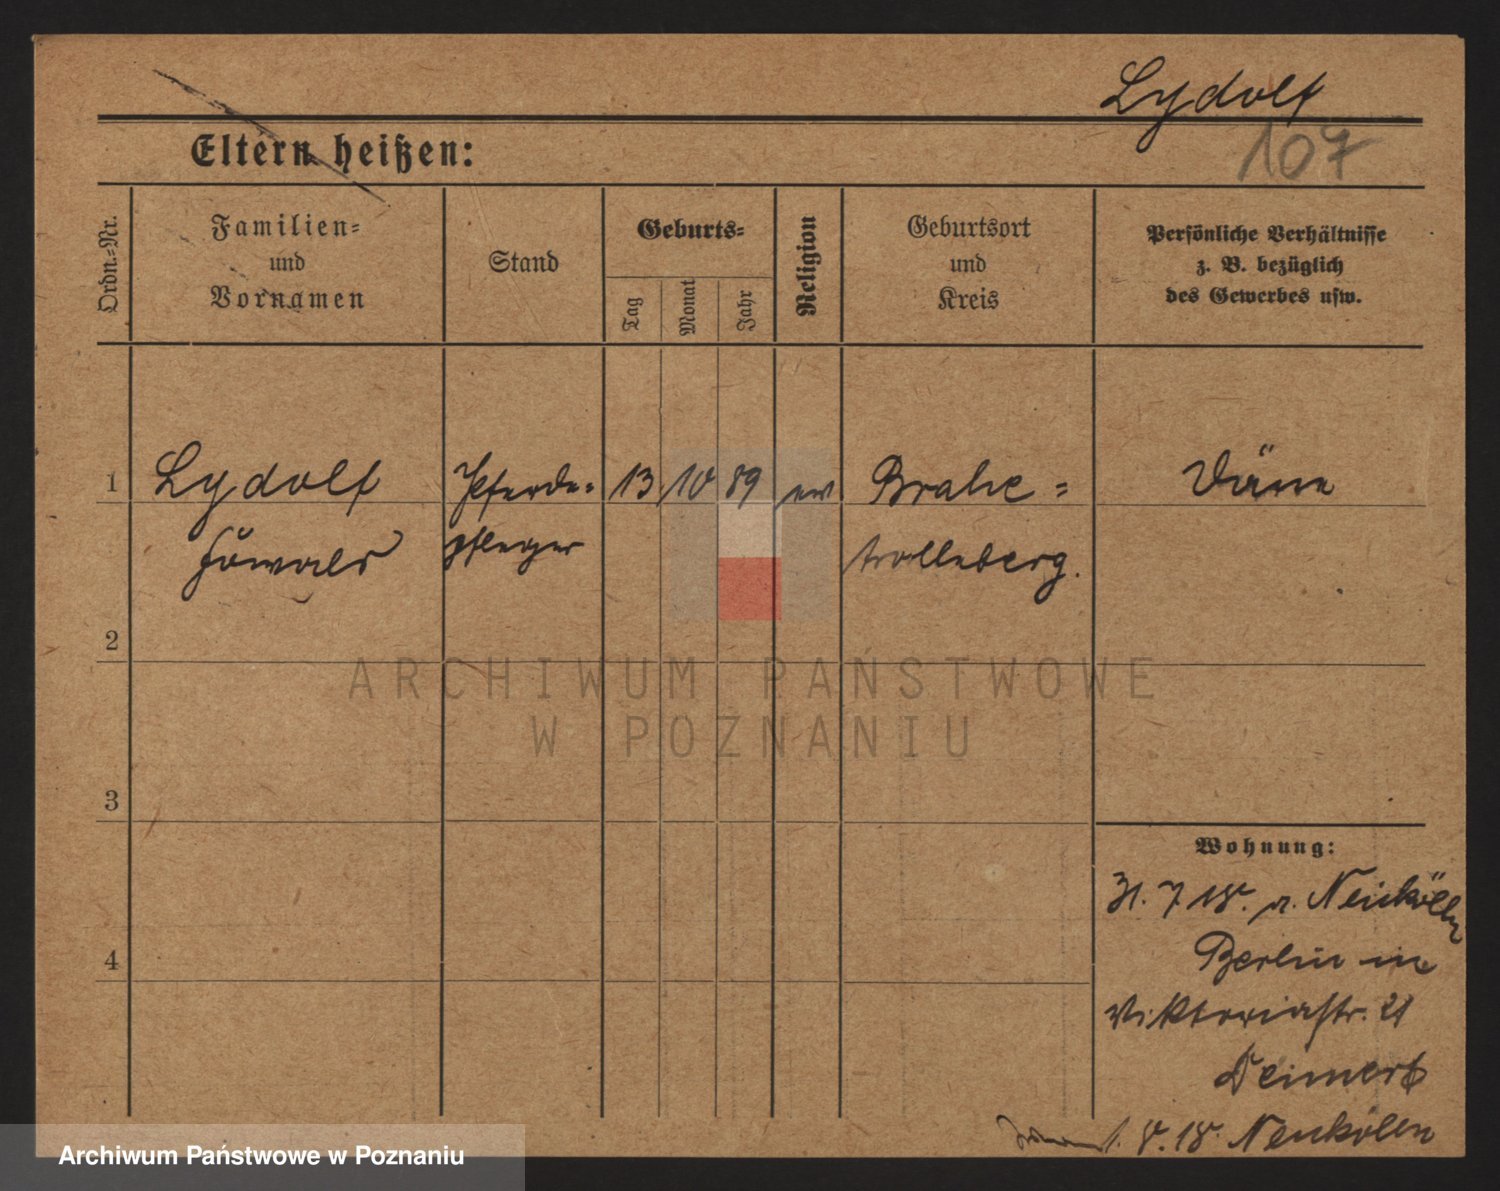 Lydolf
107
Eltern heißen:
Ordn.-Nr.
Familien-
und
Vornamen
Stand
Geburts-
Tag
Monat
Jahr
Religion
Geburtsort
und
Kreis
Persönliche Verhältnisse
z. B. bezüglich
des Gewerbes usw.
1 Lydolf Pferde- 13 10 89 ev Brahe-
pfleger trolleberg.
Däne
2
3
4
Wohnung:
31. 7 18. n. Neukölln
Berlin in
Viktoriastr. 21
Deimert
1. 8. 18. Neukölln
ARCHIWUM PAŃSTWOWE
W POZNANIU
Archiwum Państwowe w Poznaniu